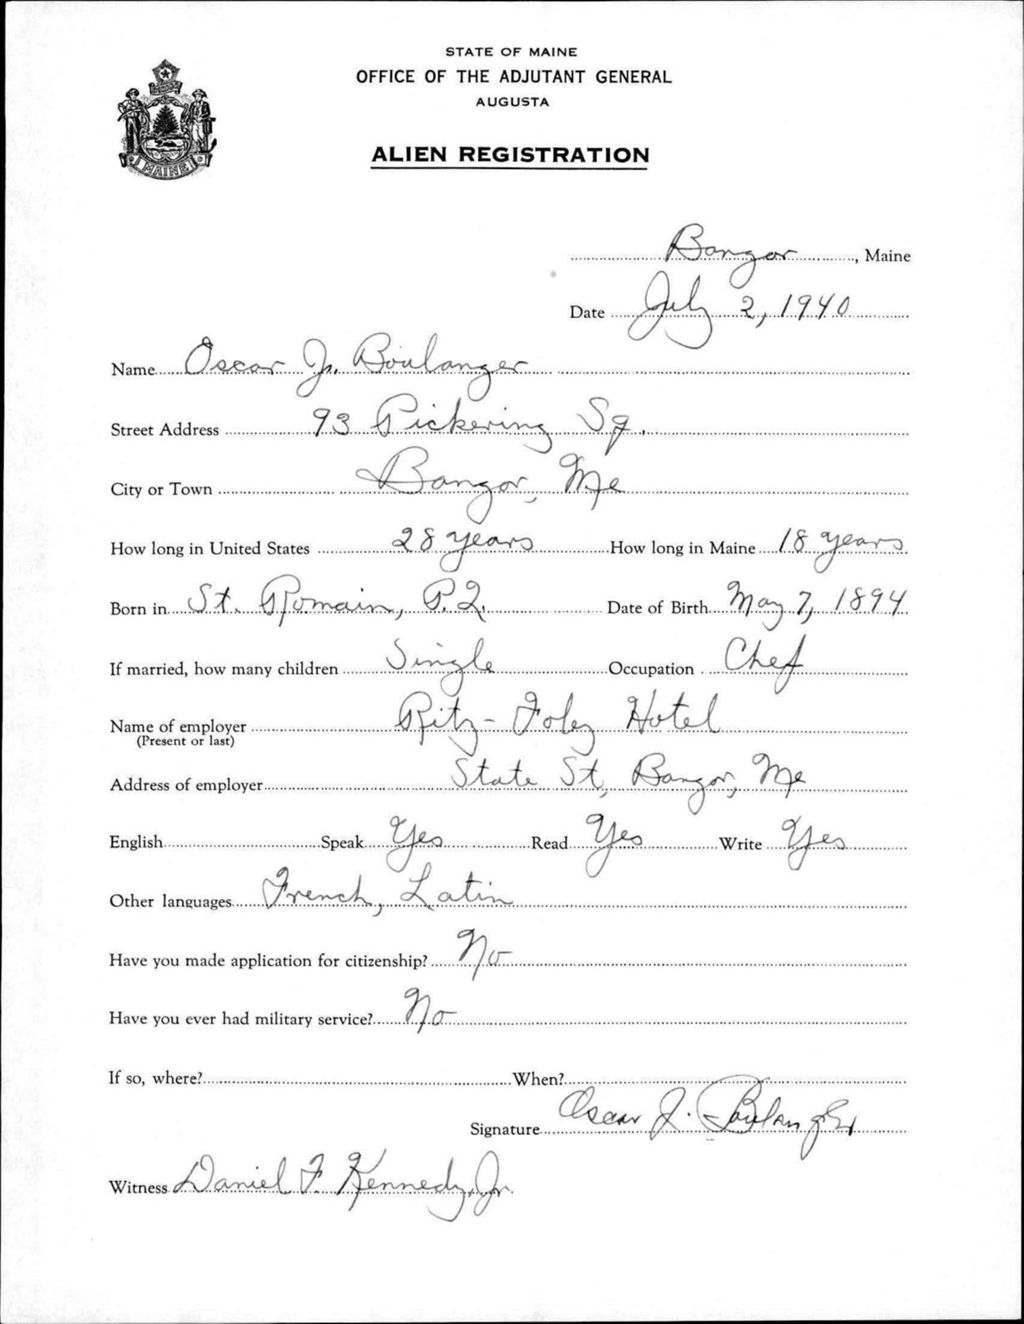 STATE OF MAINE
OFFICE OF THE ADJUTANT GENERAL
AUGUSTA
ALIEN REGISTRATION
MAINE
Bangor, Maine
Date July 2, 1940
Name Oscar J. Boulanger
Street Address 93 Pickering Sq.
City or Town Bangor, Me
How long in United States 28 years How long in Maine 18 years
Born in St. Romain, P.Q. Date of Birth May 7, 1894
If married, how many children Single Occupation Chef
Name of employer Ritz-Foley Hotel
(Present or last)
Address of employer State St, Bangor, Me
English Speak Yes Read Yes Write Yes
Other languages French, Latin
Have you made application for citizenship? No
Have you ever had military service? No
If so, where? When?
Signature Oscar J. Boulanger
Witness Daniel F. Kennedy, Jr.